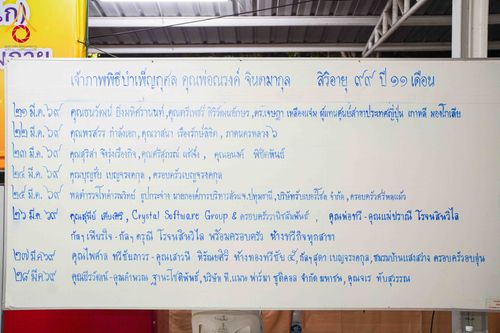 เจ้าภาพพิธีบำเพ็ญกุศล คุณพ่อณรงค์ จินตมากุล สิริอายุ ๙๙ ปี ๑๑ เดือน
๒๑ มี.ค. ๖๙ คุณธนวัฒน์ ยิ่งมหศิรานนท์, คุณศรีเพชร์ ศิริวัฒน์อักษร, ดร.เจษฎา เหลืองแจ่ม ผู้แทนศูนย์สาขาประเทศญี่ปุ่น เกาหลี มองโกเลีย
๒๒ มี.ค. ๖๙ คุณพรสวรร กำลังเอก, คุณวาสนา เรืองรักษ์ลิขิต, ภาคนครหลวง ๖
๒๓ มี.ค. ๖๙ คุณสุริสา จิรรุ่งเรืองกิจ, คุณศรีสุภรณ์ แก้งิ้ง, คุณอนงค์ พิชิตพันธ์
๒๔ มี.ค. ๖๙ คุณบุญชัย เบญจรงคกุล, ครอบครัวเบญจรงคกุล
๒๕ มี.ค. ๖๙ พลตำรวจโทคำรณวิทย์ ธูปกระจ่าง นายกองค์การบริหารส่วน จ.ปทุมธานี, บริษัทรับเบอร์โซล จำกัด, ครอบครัวศรีพลแผ้ว
๒๖ มี.ค. ๖๙ คุณสุณีย์ Crystal Software Group & ครอบครัววานิชสัมพันธ์, คุณพ่อทวี - คุณแม่ปราณี โรจนสินวิไล
กัลฯ เพียรใจ - กัลฯ ดรุณี โรจนสินวิไล พร้อมครอบครัว ห้างทวีกิจทุกสาขา
๒๗ มี.ค ๖๙ คุณไพศาล ทวีชัยถาวร - คุณเสาวนี หิรัณยศิริ ห้างทองทวีชัย ๔, กัลฯ สุดา เบญจรงคกุล, ชมรมบ้านแสงสว่าง ครอบครัวอบอุ่น
๒๘ มี.ค ๖๙ คุณธีรวัฒน์ - คุณคำพวณ ฐานะโชติพันธ์, บริษัท ที.แมน ฟาร์มา ซูติคอล จำกัด มหาชน, คุณจเร ทับสุวรรณ